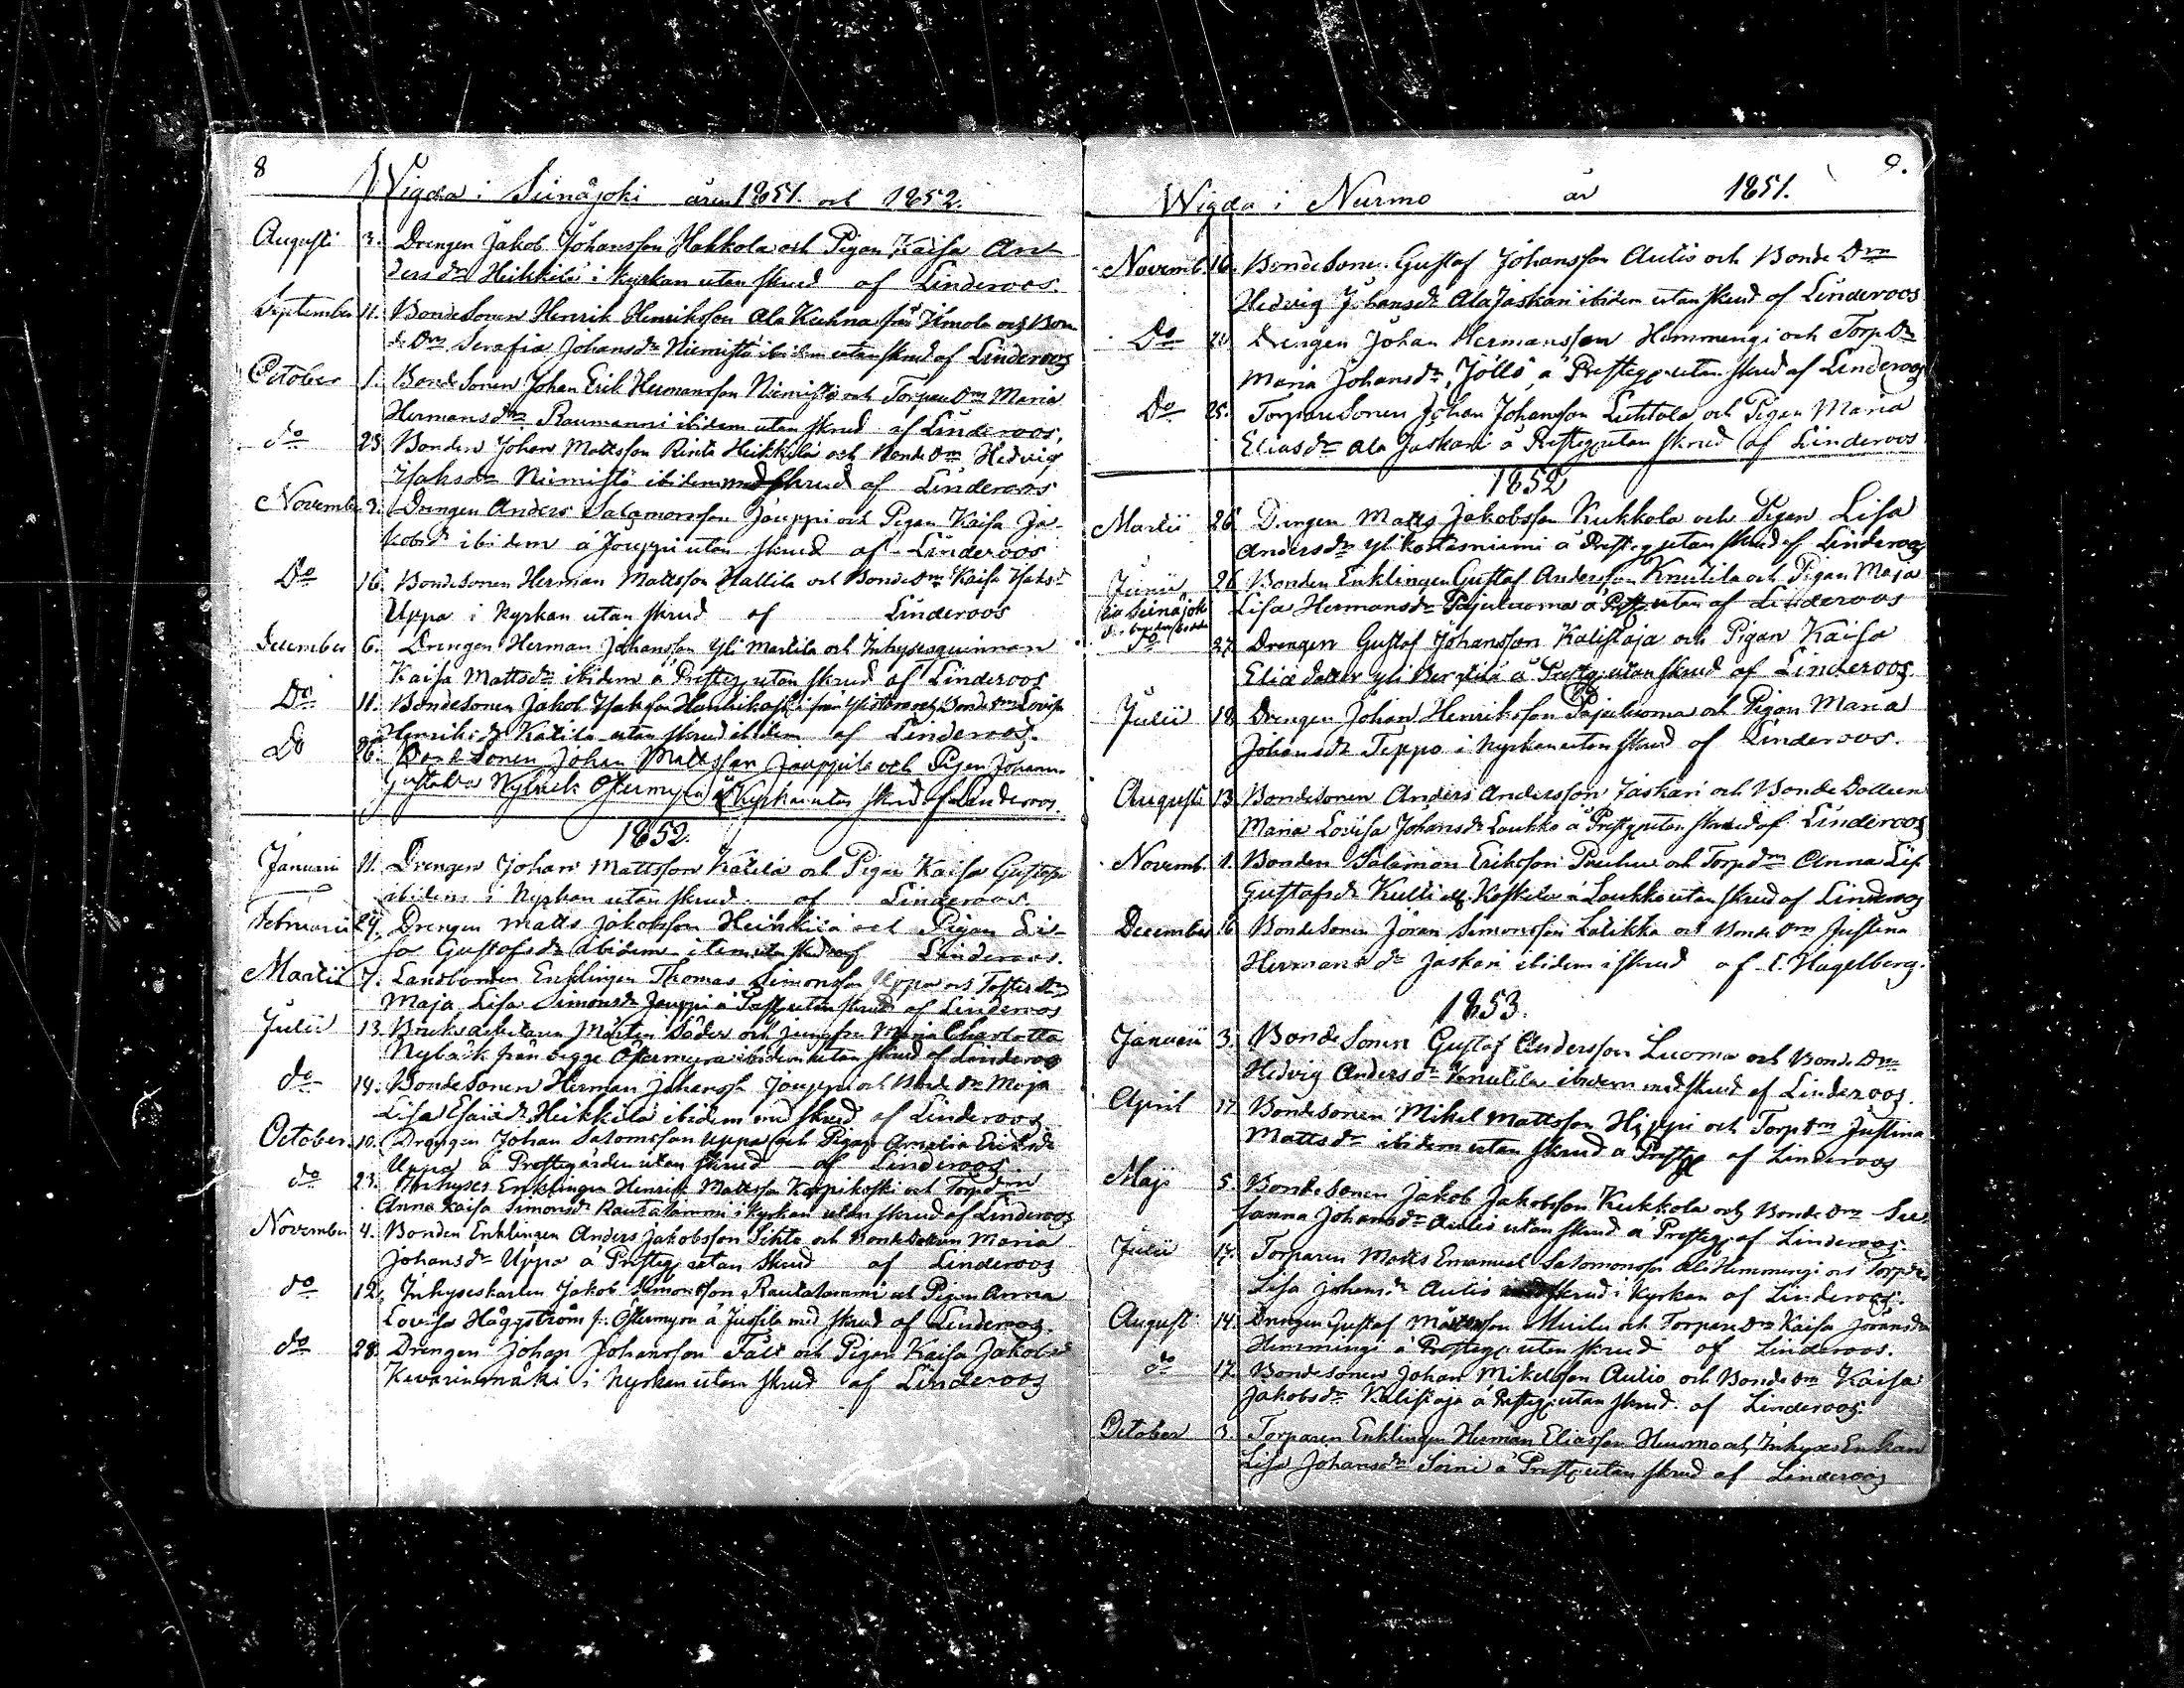 8
Wigda i Seinäjoki åren 1851. och 1852.
Augusti 3. Drengen Jakob Johansson Hakkola och Pigan Kaisa An-
dersdr Heikkilä i kyrkan utan skrud af Linderoos.
September 11. Bondesonen Henrik Henriksson Ala Kuhna från Ilmola och Bon-
de Drn Serafia Johansdr Niemistö ibidem utan skrud af Linderoos
October 1. Bonde Sonen Johan Erik Hermansson Niemistö och Torpare Drn Maria
Hermansdr Raumanni ibidem utan skrud af Linderoos,
do 25. Bonden Johan Mattsson Rinta Heikkilä och Bonde Drn Hedvig
Isaksdr Niemistö ibidem med skrud af Linderoos
November 3. Drengen Anders Salamonsson Jouppi och Pigan Kaisa Ja-
kobsdr ibidem å Jouppi utan skrud af Linderoos
Do 16. Bondesonen Herman Mattsson Hallila och Bonde Drn Kaisa Isaksdr
Uppa i kyrkan utan skrud af Linderoos
December 6. Drengen Herman Johansson Yli Marttila och Inhysesquinnan
Kaisa Mattsdr ibidem å Presteg. utan skrud af Linderoos
Do 11. Bondesonen Jakob Isaksson Hanhikoski från Ylistaro och Bonde Drn Lovisa
Henriksdr Katila utan skrud ibidem af Linderoos.
Do 26. Bonde Sonen Johan Mattsson Jouppila och Pigan Johanna
Gustafva Nybäck Östermyra i Kyrkan utan skrud af Linderoos.
1852.
Januarii 11. Drengen Johan Mattsson Katila och Pigan Kaisa Gustafsdr
ibidem i kyrkan utan skrud af Linderoos.
Februarii 29. Drengen Matts Jakobsson Heikkilä och Pigan Li-
sa Gustafsdr ibidem utan skrud af Linderoos.
Martii 7. Landbonden Enklingen Thomas Simonsson Uppa och
Maja Lisa Simonsdr Jouppi å utan skrud af Linderoos
Julii 13. Bruksarbetaren Mårten Söder och Jungfru Maria Charlotta
Nybäck från begge Östermyra ibidem utan skrud af Linderoos
do 18. Bonde Sonen Herman Johansson Jouppi och Bonde Dn Maja
Lisa Esaiædr Heikkilä ibidem med skrud af Linderoos.
October 10. Drengen Johan Salomosson Uppa och Pigan Amalia Eriksdr
Uppa å Prestegården utan skrud af Linderoos.
do 23. Inhyses Enklingen Henrik Mattsson Korpikoski och Torpdrn
Anna Kaisa Simonsdr Rautalammi i kyrkan utan skrud af Linderoos
November 4. Bonden Enklingen Anders Jakobsson Sihto och Bonde Dottren Maria
Johansdr Uppa å Presteg. utan skrud af Linderoos
do 12. Inhyseskarlen Jakob Simonsson Rautalammi och Pigan Anna
Lovisa Häggström fr. Östermyra å Jussila med skrud af Linderoos.
do 28. Drengen Johan Johansson Fält och Pigan Kaisa Jakobsdr
Kevarinmäki i kyrkan utan skrud af Linderoos
9.
Wigda i Nurmo år 1851.
Novemb. 16. Bonde Sonen Gustaf Johansson Aulio och Bonde Drn
Hedvig Johansdr Ala Jaskari ibidem utan skrud af Linderoos
Do Drengen Johan Hermansson Hemmingi och Torp Dn
Maria Johansdr Jöllö å Presteg. utan skrud af Linderoos
Do 25. Torpare Sonen Johan Johansson Luhtala och Pigan Maria
Eliasdr Ala Jaskari å Presteg. utan skrud af Linderoos
1852
Martii 26. Drengen Matts Jakobsson Kukkola och Pigan Lisa
Andersdr Yli Kortesniemi å Presteg. utan skrud af Linderoos
Junii 26. Bonden Enklingen Gustaf Andersson Knuutila och Pigan Maja
Lisa Hermansdr Pajuluoma å Prest. utan af Linderoos
do 27. Drengen Gustaf Johansson Kalistaja och Pigan Kaisa
Eliæ dotter Yli Bergtilä å Presteg. utan skrud af Linderoos.
Julii 18. Drengen Johan Henriksson Pajuluoma och Pigan Maria
Johansdr Teppo i kyrkan utan skrud af Linderoos.
Augusti 13. Bondesonen Anders Andersson Jaskari och Bonde Dottren
Maria Lovisa Johansdr Louhko å Presteg. utan skrud af Linderoos
Novemb. 1. Bonden Salamon Eriksson Pouhu och Torpdrn Anna Lisa
Gustafsdr Kulti Koskela å Louhko utan skrud af Linderoos
December 6. Bonde Sonen Jöran Simonsson Latikka och Bonde Drn Justina
Hermansdr Jaskari ibidem i skrud af C. Hagelberg.
1853.
Januarii 3. Bonde Sonen Gustaf Andersson Luoma och Bonde Drn
Hedvig Andersdr Knuutila ibidem med skrud af Linderoos.
April 17. Bondesonen Mikel Mattsson Hippi och Torp Drn Justina
Mattsdr ibidem utan skrud å Presteg. af Linderoos
Maji 5. Bonde Sonen Jakob Jakobsson Kukkola och Bonde Drn Su-
sanna Johansdr Aulio utan skrud å Presteg. af Linderoos.
Julii 17. Torparen Matts Emanuel Salomonsson Ala Hemmingi och Torpdr
Lisa Johansdr Aulio skrud i kyrkan af Linderoos.
Augusti 14. Drengen Gustaf Mattsson och Torpare Drn Kaisa Jöransdr
Hemmingi å Presteg. utan skrud af Linderoos.
do 17. Bonde Sonen Johan Mikelsson Aulio och Bonde Drn Kaisa
Jakobsdr Kalistaja å Presteg. utan skrud af Linderoos.
October 3. Torparen Enklingen Herman Eliasson och Inhyses Enkan
Lisa Johansdr Soini å Presteg. utan skrud af Linderoos